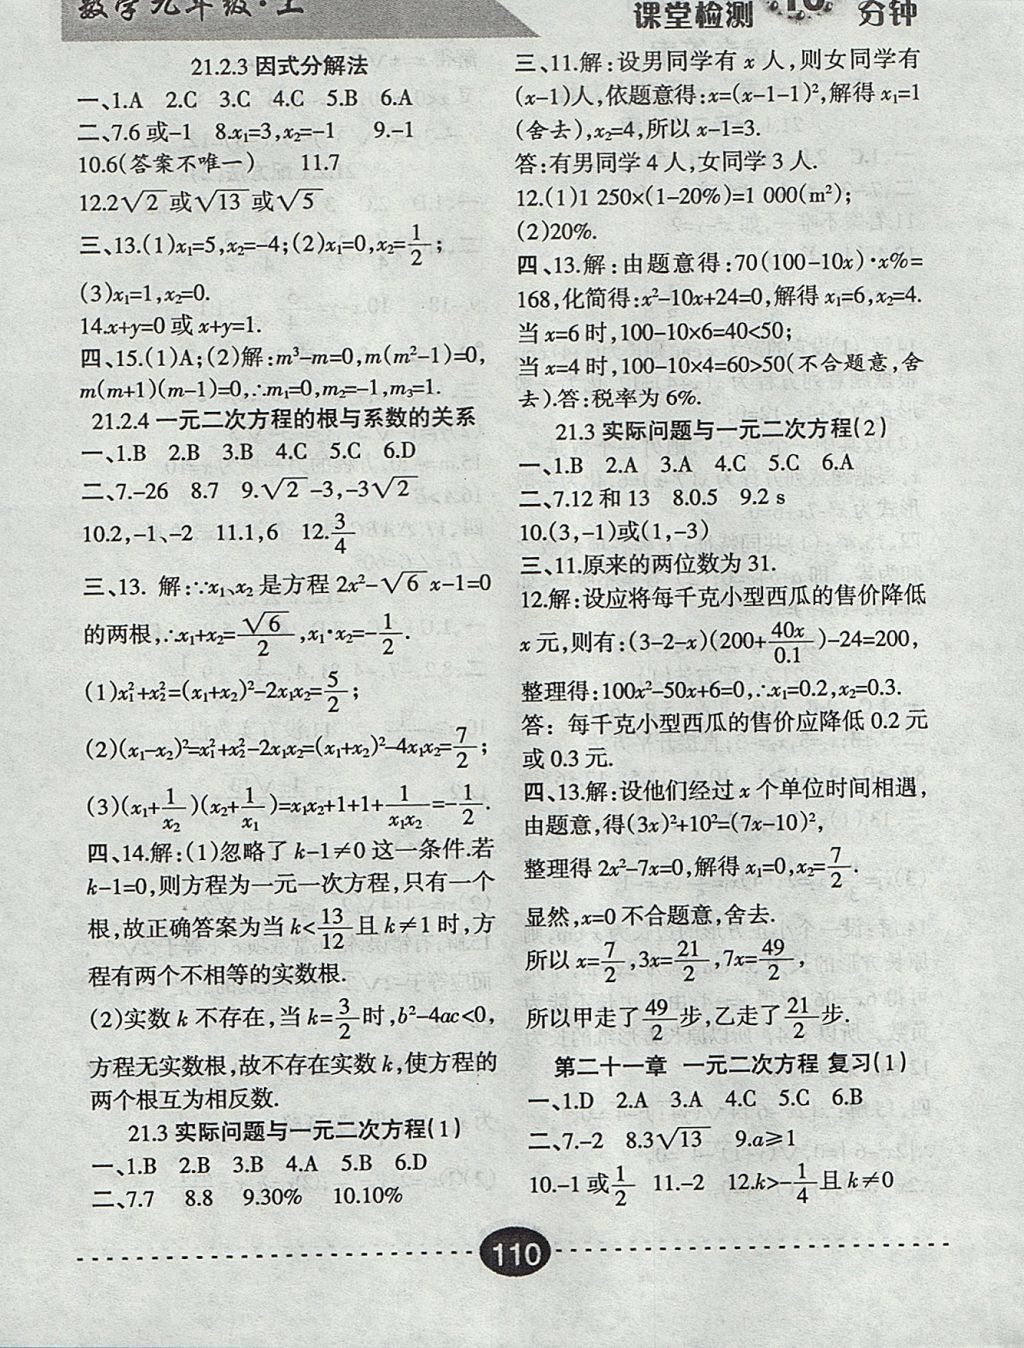 数学九年级·上
课堂检测10分钟
21.2.3 因式分解法
一、1.A 2.C 3.C 4.C 5.B 6.A
二、7.6 或-1 8.x₁=3,x₂=-1 9.-1
10.6(答案不唯一) 11.7
12.2√2 或√13 或√5
三、13.(1)x₁=5,x₂=-4;(2)x₁=0,x₂=1/2;
(3)x₁=1,x₂=0.
14.x+y=0 或 x+y=1.
四、15.(1)A;(2)解:m³-m=0,m(m²-1)=0,
m(m+1)(m-1)=0,∴m₁=0,m₂=-1,m₃=1.
21.2.4 一元二次方程的根与系数的关系
一、1.B 2.B 3.B 4.C 5.C 6.D
二、7.-26 8.7 9.√2-3,-3√2
10.2,-1、-2 11.1,6 12.3/4
三、13. 解:∵x₁、x₂ 是方程 2x²-√6 x-1=0
的两根,∴x₁+x₂=√6/2,x₁·x₂=-1/2.
(1)x₁²+x₂²=(x₁+x₂)²-2x₁x₂=5/2;
(2)(x₁-x₂)²=x₁²+x₂²-2x₁x₂=(x₁+x₂)²-4x₁x₂=7/2;
(3)(x₁+1/x₂)(x₂+1/x₁)=x₁x₂+1+1+1/x₁x₂=-1/2.
四、14.解:(1)忽略了 k-1≠0 这一条件.若
k-1=0,则方程为一元一次方程,只有一个
根,故正确答案为当 k<13/12且 k≠1 时,方
程有两个不相等的实数根.
(2)实数 k 不存在,当 k=3/2时,b²-4ac<0,
方程无实数根,故不存在实数 k,使方程的
两个根互为相反数.
21.3 实际问题与一元二次方程(1)
一、1.B 2.B 3.B 4.A 5.B 6.D
二、7.7 8.8 9.30% 10.10%
三、11.解:设男同学有 x 人,则女同学有
(x-1)人,依题意得:x=(x-1-1)²,解得 x₁=1
(舍去),x₂=4,所以 x-1=3.
答:有男同学 4 人,女同学 3 人.
12.(1)1 250×(1-20%)=1 000(m²);
(2)20%.
四、13.解:由题意得:70(100-10x)·x%=
168,化简得:x²-10x+24=0,解得 x₁=6,x₂=4.
当 x=6 时,100-10×6=40<50;
当 x=4 时,100-10×4=60>50(不合题意,舍
去).答:税率为 6%.
21.3 实际问题与一元二次方程(2)
一、1.B 2.A 3.A 4.C 5.C 6.A
二、7.12 和 13 8.0.5 9.2 s
10.(3,-1)或(1,-3)
三、11.原来的两位数为 31.
12.解:设应将每千克小型西瓜的售价降低
x 元,则有:(3-2-x)(200+40x/0.1)-24=200,
整理得:100x²-50x+6=0,∴x₁=0.2,x₂=0.3.
答: 每千克小型西瓜的售价应降低 0.2 元
或 0.3 元.
四、13.解:设他们经过 x 个单位时间相遇,
由题意,得(3x)²+10²=(7x-10)²,
整理得 2x²-7x=0,解得 x₁=0,x₂=7/2.
显然,x=0 不合题意,舍去.
所以 x=7/2,3x=21/2,7x=49/2,
所以甲走了49/2步,乙走了21/2步.
第二十一章 一元二次方程 复习(1)
一、1.D 2.A 3.A 4.C 5.C 6.B
二、7.-2 8.3√13 9.a≥1
10.-1 或1/2 11.-2 12.k>-1/4且 k≠0
110